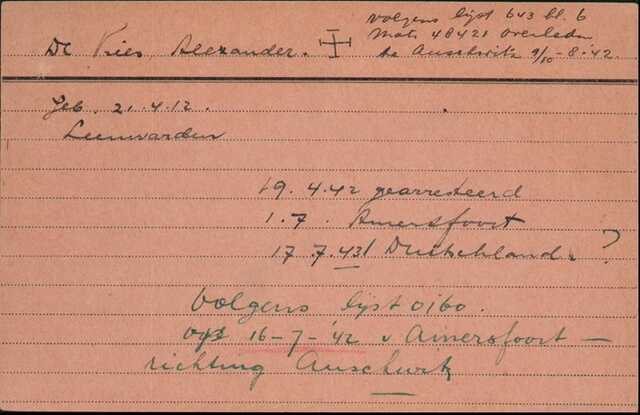 De Vries, Alexander.
volgens lijst 643 bl. 6
Matr. 48421 overleden
te Auschwitz 9/10-8-42.
Geb. 21.4.12.
Leeuwarden
19.4.42 gearresteerd
1.7. Amersfoort
17.7.43 Duitschland. ?
Volgens lijst 0160.
op 16-7-'42 v Amersfoort —
richting Auschwitz